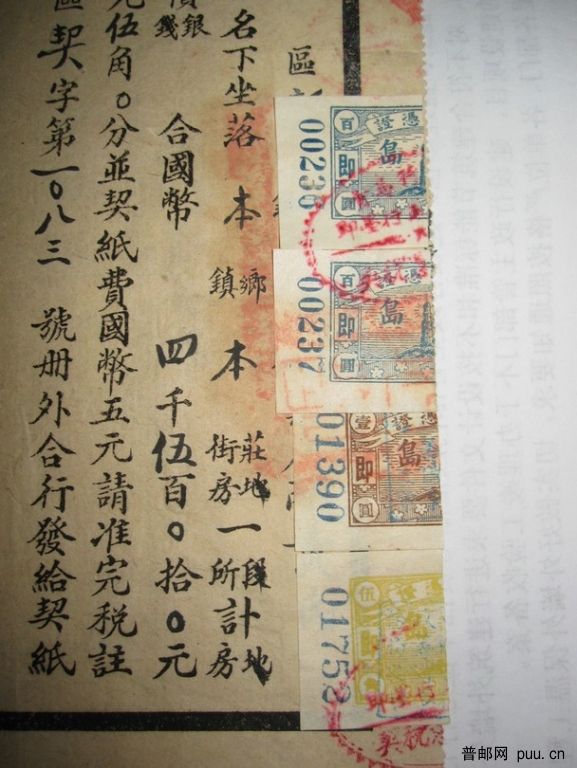 區
名下坐落本鄉鎮本莊街地房一段所計地房
價銀錢
合國幣四千伍百〇拾〇元
元伍角〇分並契紙費國幣五元請准完稅註
區契字第一〇八三號册外合行發給契紙
00236
百
憑證
島
即
圓
00237
百
憑證
島
即
圓
01390
壹
證
島
即
圓
01752
伍
島
普邮网 puu.cn